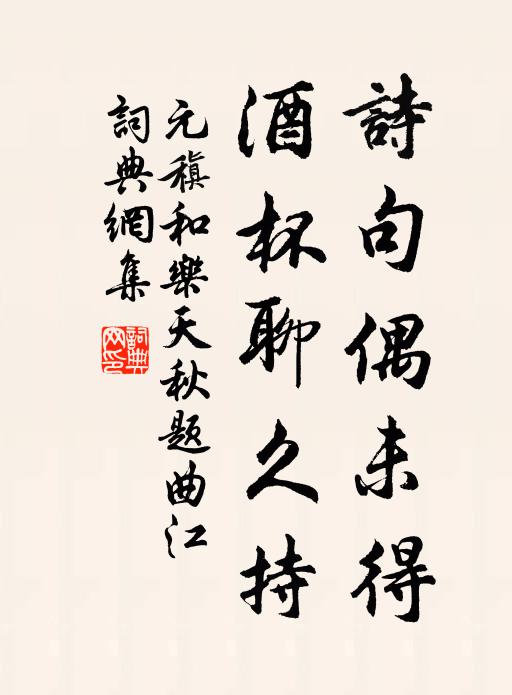 詩句偶未得
酒杯聊久持
元稹和樂天秋題曲江
詞典網集
詞典網印